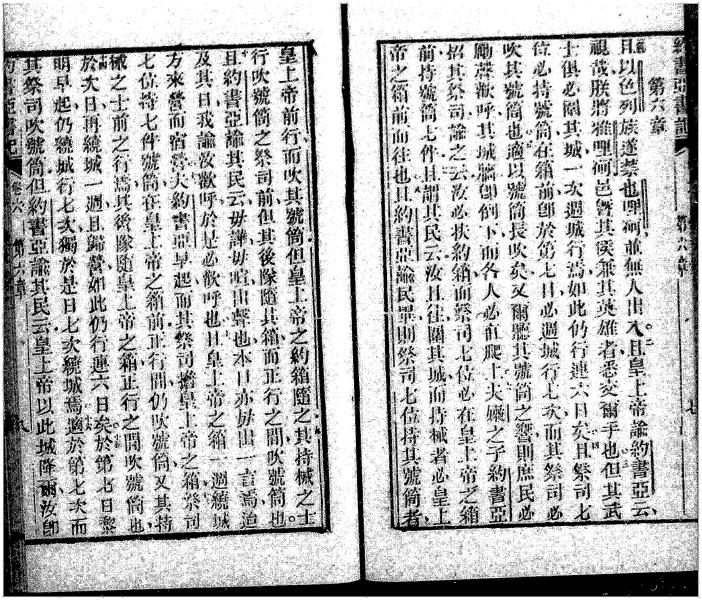 約書亞書記
第六章
第六章
且以色列族遂禁也哩柯並無人出入且皇上帝諭約書亞云
視哉朕將雅哩柯邑曁其侯兼其英雄者悉交爾手也但其武
士俱必圍其城一次週城行焉如此仍行連六日矣且祭司七
位必持號筒在箱前卽於第七日必週城行七次而其祭司必
吹其號筒也適以號筒長吹矣又爾聽其號筒之響則庶民必
勵聲歡呼其城牆卽倒下而各人必直爬上夫嫩之子約書亞
招其祭司諭之云汝必扶約箱而祭司七位必在皇上帝之箱
前持號筒七件且謂其民云汝且往圍其城而持械者必皇上
帝之箱前而往也且約書亞諭民畢則祭司七位持其號筒者
七
皇上帝前行而吹其號筒但皇上帝之約箱隨之其持械之士
行吹號筒之祭司前但其後隊隨其箱而正行之間吹號筒也
且約書亞諭其民云毋譁毋喧出聲也本口亦毋出一言焉迨
及其日我諭汝歡呼於是必歡呼也且皇上帝之箱一週繞城
方來營而宿營夫約書亞早起而其祭司擔皇上帝之箱祭司
七位持七件號筒在皇上帝之箱前正行間仍吹號筒又其持
械之士前之行焉其後隊隨皇上帝之箱正行之間吹號筒也
於次日再繞城一週且歸營如此仍行連六日矣於第七日黎
明早起仍繞城行七次獨於是日七次繞城焉適於第七次而
其祭司吹號筒但約書亞諭其民云皇上帝以此城降爾汝卽
約書亞書記
卷六
第六章
八